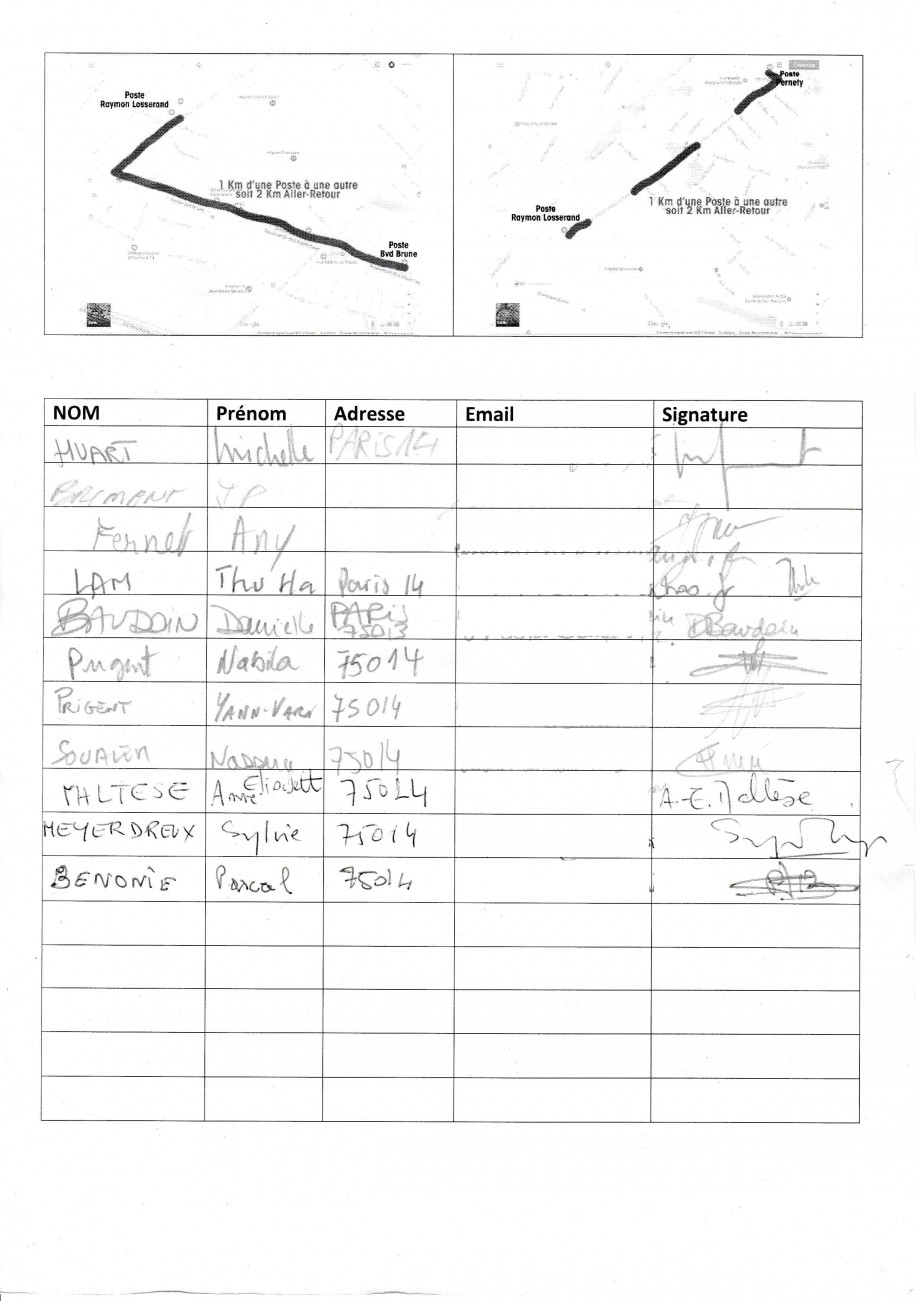 Poste
Raymon Losserand
1 Km d'une Poste à une autre
soit 2 Km Aller-Retour
Poste
Bvd Brune
Google
Poste
Pernety
1 Km d'une Poste à une autre
soit 2 Km Aller-Retour
Poste
Raymon Losserand
Google
NOM Prénom Adresse Email Signature
HUART Michelle PARIS 14
BRIMANT JP
Fernell Any
LAM Thu Ha Paris 14
BAUDOIN Danielle PARIS 75013 DBaudoin
Prigent Nabila 75014
PRIGENT YANN-VARI 75014
SOUALEM 75014
MALTESE Anne Elisabett 75014 A.-E. Maltèse
MEYERDREUX Sylvie 75014
BENONIE Pascal 75014